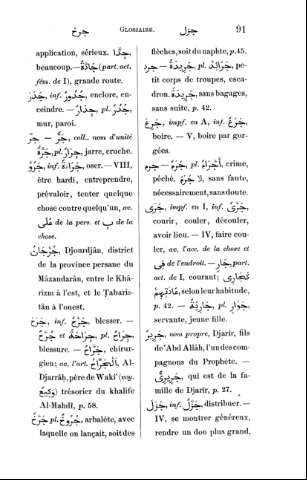 جرح
GLOSSAIRE.
جزل
91
application, sérieux. جِدًّا
beaucoup.— جَادَّة (part. act.
fém. de I), grande route.
جَدَرَ, inf. جُدُور, enclore, en-
ceindre. — جِدَار, pl. جُدُر,
mur, paroi.
جرّ — جَرَّة, coll., nom d'unité
جَرَّة, pl. جِرَار, jarre, cruche.
جَرُؤَ, inf. جَرَاءَة, oser. — VIII,
être hardi, entreprendre,
prévaloir, tenter quelque
chose contre quelqu'un, av.
عَلَى de la pers. et بِ de la
chose.
جُرْجَان Djourdjân, district
de la province persane du
Mâzandarân, entre le Khâ-
rizm à l'est, et le Ṭabaris-
tân à l'ouest.
جَرَحَ, inf. جَرْح, blesser. —
جُرْح et جِرَاحَة pl. جِرَاح,
blessure. — جَرَّاح, chirur-
gien; av. l'art. الجَرَّاح, Al-
Djarrâḥ, père de Wakî' (voy.
وَكِيع) trésorier du khalife
Al-Mahdî, p. 58.
جَرْخ pl. جُرُوخ, arbalète, avec
laquelle on lançait, soit des
flèches, soit du naphte, p. 45.
جرد — جَرِيدَة, pl. جَرَائِد, pe-
tit corps de troupes, esca-
dron. جَرِيدَة, sans bagages,
sans suite, p. 42.
جَرِعَ, impf. en A, inf. جَرْع,
boire. — V, boire par gor-
gées.
جرم — جُرْم pl. أَجْرَام, crime,
péché. لَا جَرَمَ, sans faute,
nécessairement, sans doute.
جَرَى, impf. en I, inf. جَرْى,
courir, couler, découler,
avoir lieu. — IV, faire cou-
ler, av. l'acc. de la chose et
فِى de l'endroit. — جَارٍ, part.
act. de I, courant;
, selon leur habitude,
p. 42. — جَارِيَة, pl. جَوَارٍ,
servante, jeune fille.
جَرِير, nom propre, Djarîr, fils
de 'Abd Allâh, l'un des com-
pagnons du Prophète. —
جَرِيرِى, qui est de la fa-
mille de Djarîr, p. 27.
جَزَلَ, inf. جَزْل, distribuer. —
IV, se montrer généreux,
rendre un don plus grand,